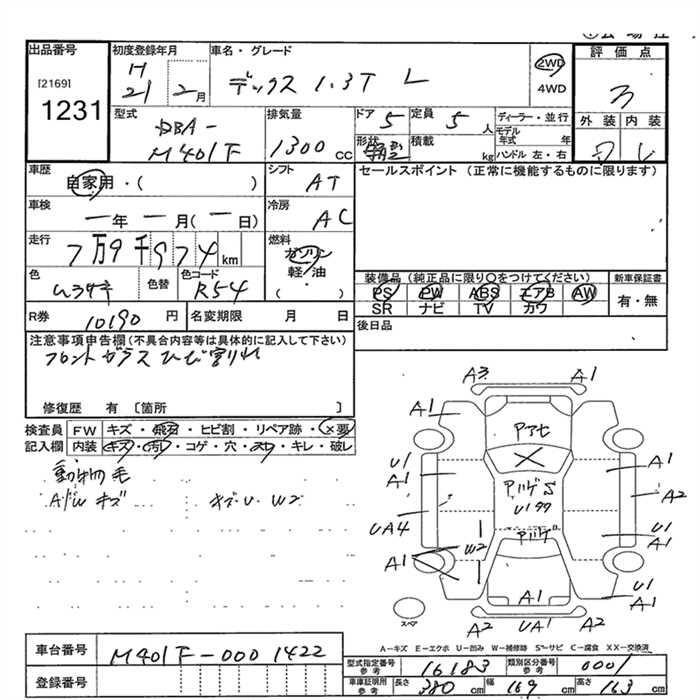 出品番号
[2169]
1231
初度登録年月
H
21 2月
車名・グレード
デックス 1.3T L
2WD
4WD
評価点
3
外装 内装
型式
DBA-
M401F
排気量
1300 CC
ドア 5
定員 5 人
形状
積載 kg
ディーラー・並行
モデル年式 年
ハンドル 左・右
車歴
自家用・( )
シフト
AT
セールスポイント (正常に機能するものに限ります)
車検
一年 一月(一日)
冷房
AC
走行
7万9千974km
燃料
ガソリン
軽・油
( ・ )
色
ムラサキ
色替
色コード
R54
装備品(純正品に限り○をつけてください)
PS PW ABS エアB AW
SR ナビ TV カワ
新車保証書
有・無
R券 10190 円
名変期限 月 日
後日品
注意事項申告欄(不具合内容等は具体的に記入して下さい)
フロントガラス ひび割れ
修復歴 有 〔箇所 〕
検査員 FW キズ・飛石・ヒビ割・リペア跡・×要
記入欄 内装 キズ・汚レ・コゲ・穴・スレ・キレ・破レ
動物毛
A/W キズ
キズU W2
A3 A1
A1
U1
A1
UA4
A1
W2
A1
A2
U1
A1
U1
A1
A1
A2 UA1 A2
スペア
A-キズ E-エクボ U-凹み W-補修跡 S-サビ C-腐食 XX-交換済
車台番号
M401F-0001422
登録番号
型式指定番号
参考
16183
類別区分番号
参考
0001
車車証明用
参考
長さ 380 cm 幅 169 cm 高さ 163 cm